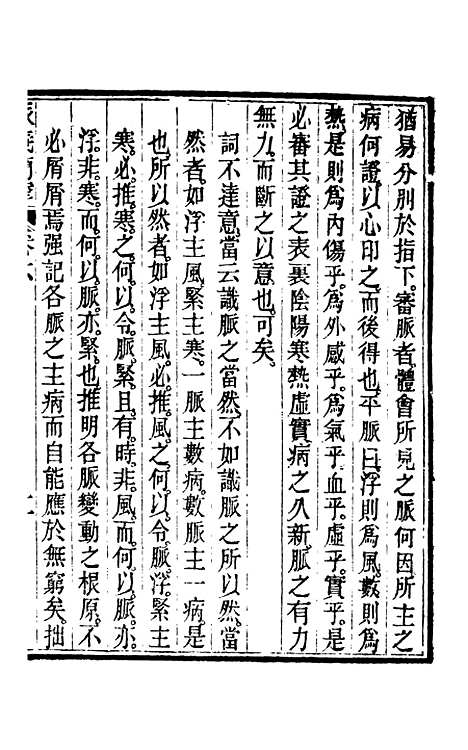 猶易分別於指下。審脈者。體會所見之脈何因。所主之
病何證。以心印之。而後得也。平脈曰。浮則爲風。數則爲
熱。是則爲內傷乎。爲外感乎。爲氣乎。血乎。虛乎。實乎。是
必審其證之表裏陰陽寒熱虛實。病之久新。脈之有力
無力。而斷之以意也。可矣。
詞不達意。當云識脈之當然。不如識脈之所以然。當
然者。如浮主風。緊主寒。一脈主數病。數脈主一病。是
也。所以然者。如浮主風。必推風之何以令脈浮。緊主
寒。必推寒之何以令脈緊。且有時非風而何以脈亦
浮。非寒而何以脈亦緊也。推明各脈變動之根原。不
必屑屑焉强記各脈之主病。而自能應於無窮矣。拙